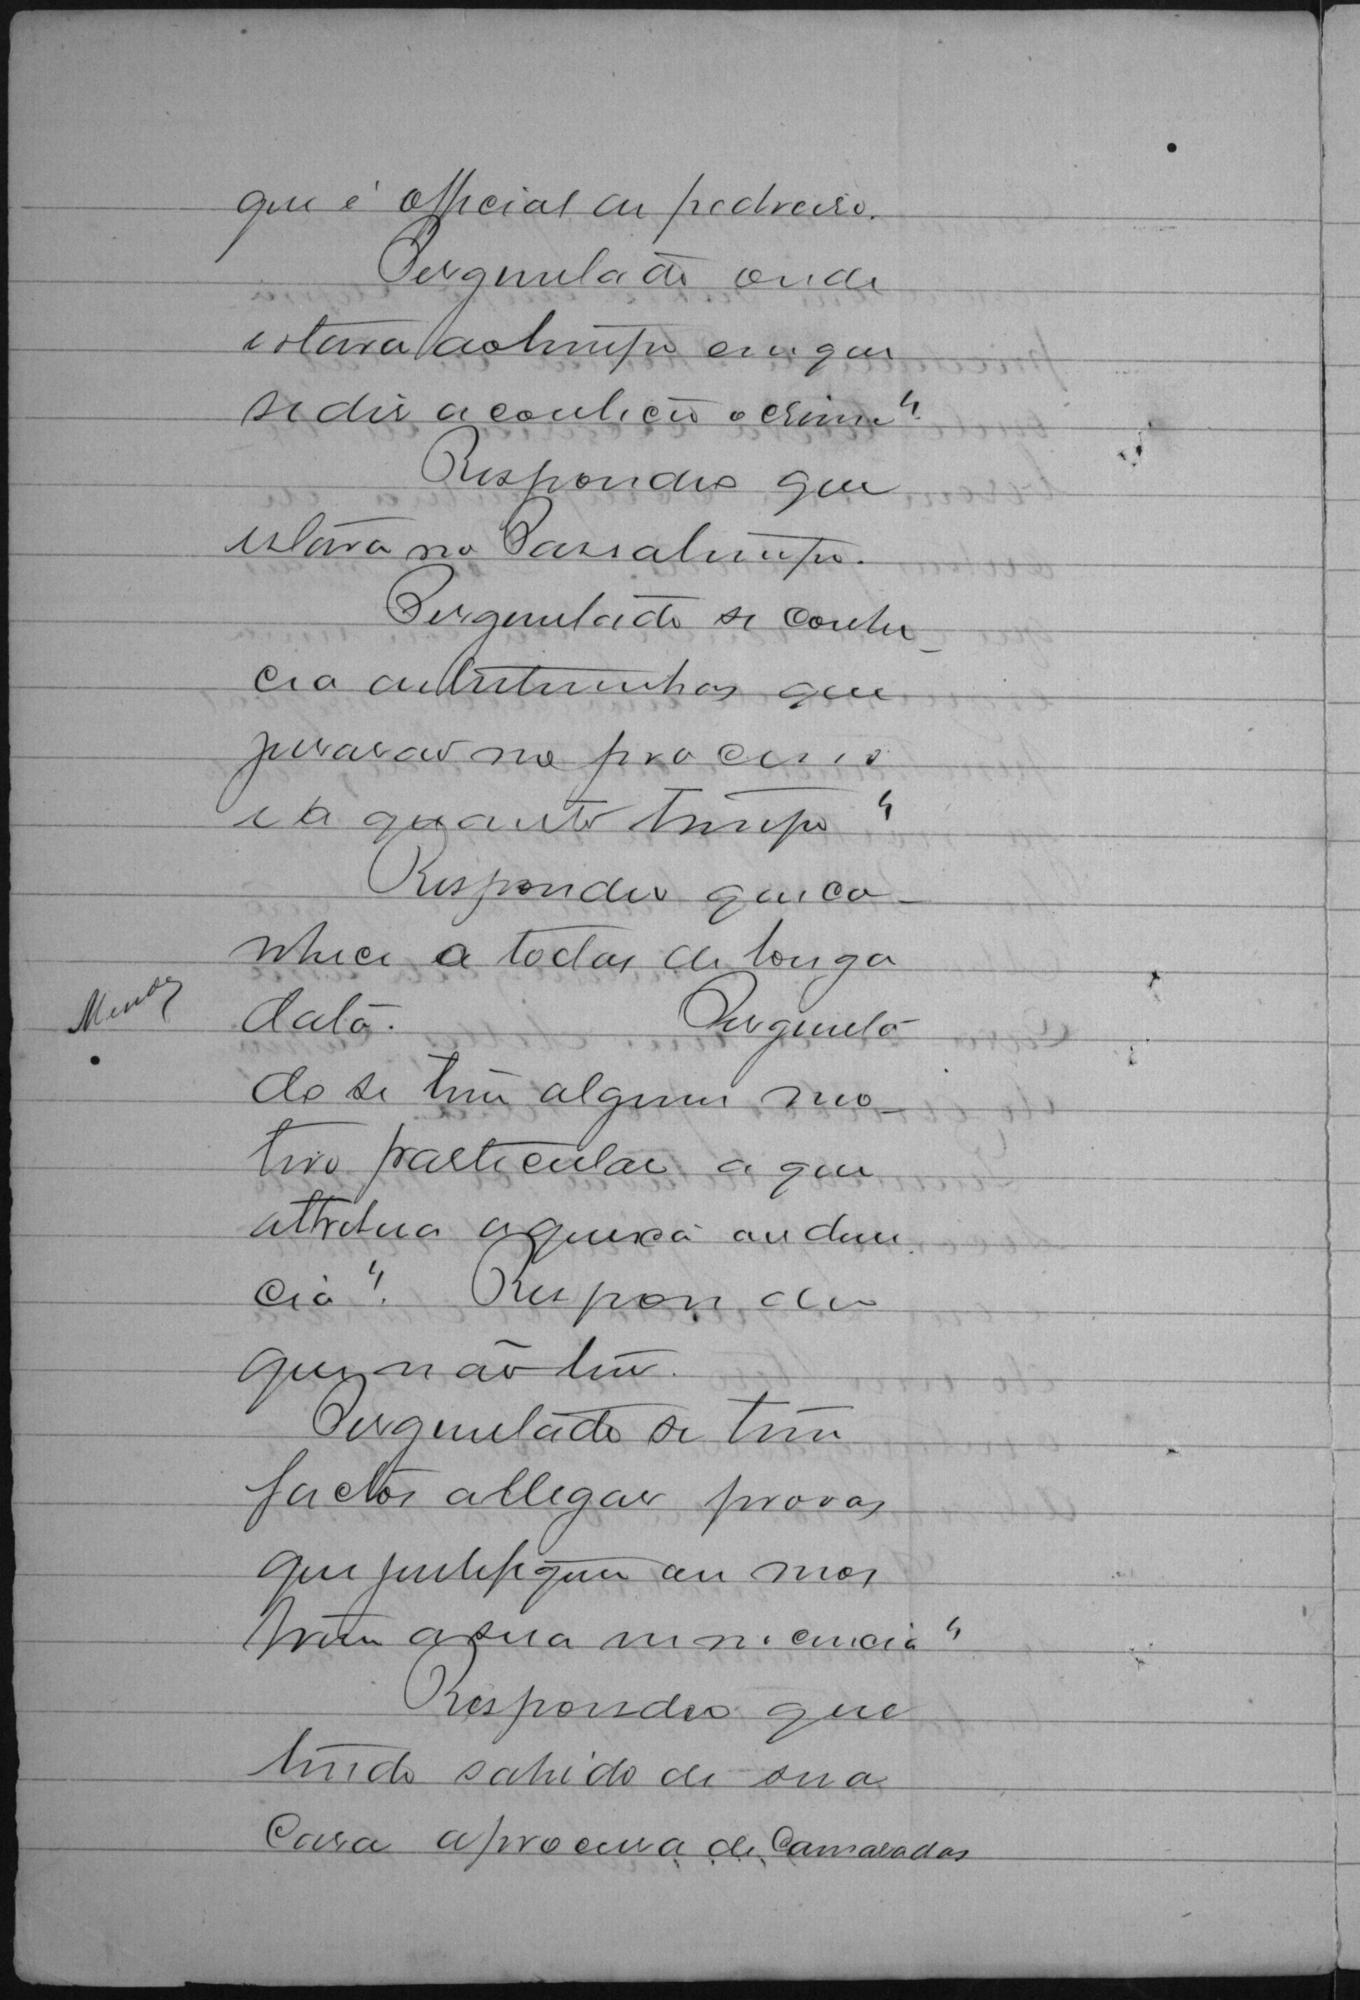 que é official de pedreiro.
Perguntado onde
estava ao tempo em que
se diz aconteceu o crime?
Respondeo que
estava no Passatempo.
Perguntado se conhe-
cia as testemunhas que
jurarão no processo
e a quanto tempo?
Respondeo que co-
nhece a todas de longa
data. Pergunta
do se tem algum mo-
tivo particular a que
attribua a queixa ou denun
cia? Respondeo
que não tem.
Perguntado se tem
factos allegar provas
que justifiquem ou mos
trem a sua innocencia?
Respondeo que
tendo sahido de sua
Casa a procura de Camaradas